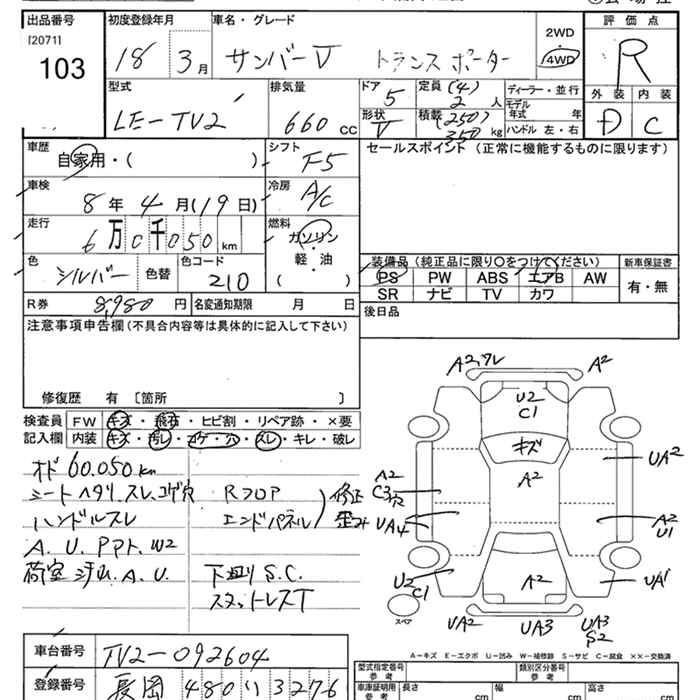 出品番号
[2071]
103
初度登録年月
18 3月
車名・グレード
サンバーV トランスポーター
2WD
4WD
評価点
R
外装 内装
D C
型式
LE-TV2
排気量
660 cc
ドア
5
形状
V
定員 (4)
2 人
積載 (250)
350 kg
ディーラー・並行
モデル
年式 年
ハンドル 左・右
車歴
自家用・( )
シフト
F5
セールスポイント (正常に機能するものに限ります)
車検
8年 4月(19日)
冷房
A/C
走行
6万0千050km
燃料
ガソリン
・
軽油
( )
色
シルバー
色替
色コード
210
装備品(純正品に限り○をつけてください)
PS PW ABS エアB AW
SR ナビ TV カワ
新車保証書
有・無
R券 8,980円
名変通知期限 月 日
後日品
注意事項申告欄(不具合内容等は具体的に記入して下さい)
修復歴 有 〔箇所 〕
検査員 FW キズ・飛石・ヒビ割・リペア跡・×要
記入欄 内装 キズ・汚レ・コゲ・穴・スレ・キレ・破レ
オド 60.050km
シートヘタリ.スレ.コゲ穴
ハンドルスレ
A.U.PPト.W2
荷室汚れ.A.U.
Rフロア
エンドパネル
修正
歪み
下廻りS.C.
スタットレスT
A2,ワレ A2
U2
C1
キズ
A2
UA2
A2
C3穴
UA4
A2
U1
U2
C1
UA1
A2
スペア
UA2 UA3 UA3
S2
A-キズ E-エクボ U-凹み W-補修跡 S-サビ C-腐食 ××-交換済
車台番号 TV2-092604
登録番号 長岡 480 い 3276
型式指定番号
参考
類別区分番号
参考
車庫証明用
参考
長さ cm
幅 cm
高さ cm